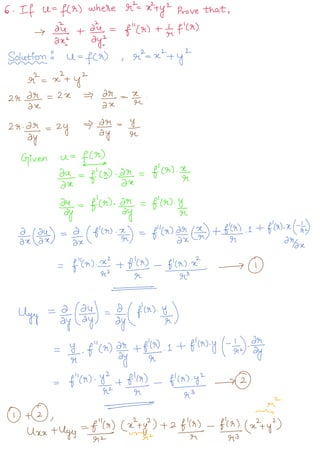 6. If u = f(r) where r² = x² + y² Prove that,
→ ∂²u/∂x² + ∂²u/∂y² = f''(r) + 1/r f'(r)
Solution: u = f(r) , r² = x² + y²
r² = x² + y²
2r ∂r/∂x = 2x ⇒ ∂r/∂x = x/r
2r · ∂r/∂y = 2y ⇒ ∂r/∂y = y/r
Given u = f(r)
∂u/∂x = f'(r) · ∂r/∂x = f'(r) · x/r
∂u/∂y = f'(r) · ∂r/∂y = f'(r) · y/r
∂/∂x (∂u/∂x) = ∂/∂x (f'(r) · x/r) = f''(r) ∂r/∂x (x/r) + f'(r)/r · 1 + f'(r) · x (-1/r²) ∂r/∂x
= f''(r) · x²/r² + f'(r)/r - f'(r) · x²/r³ → ①
Uyy = ∂/∂y (∂u/∂y) = ∂/∂y (f'(r) · y/r)
= y/r · f''(r) ∂r/∂y + f'(r)/r · 1 + f'(r) · y (-1/r²) · ∂r/∂y
= f''(r) · y²/r² + f'(r)/r - f'(r) · y²/r³ → ②
① + ②,
Uxx + Uyy = f''(r)/r² (x² + y²) + 2 f'(r)/r - f'(r)/r³ (x² + y²)
r² r²